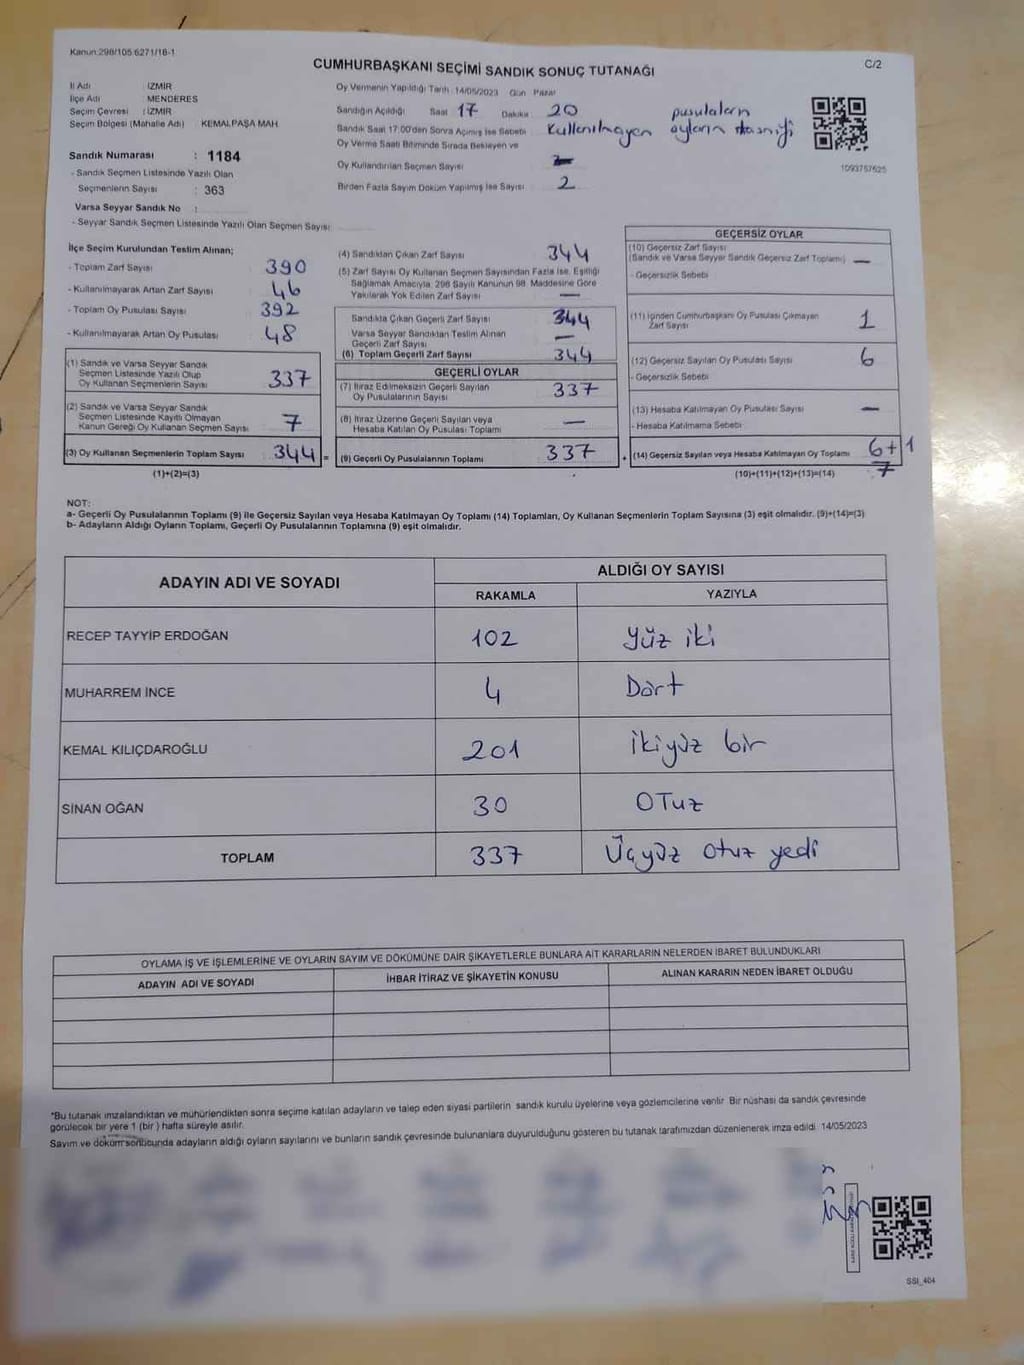 Kanun:298/105 6271/16-1
C/2
CUMHURBAŞKANI SEÇİMİ SANDIK SONUÇ TUTANAĞI
İl Adı : İZMİR
İlçe Adı : MENDERES
Seçim Çevresi : İZMİR
Seçim Bölgesi (Mahalle Adı) : KEMALPAŞA MAH.
Sandık Numarası : 1184
- Sandık Seçmen Listesinde Yazılı Olan
Seçmenlerin Sayısı : 363
Varsa Seyyar Sandık No :
- Seyyar Sandık Seçmen Listesinde Yazılı Olan Seçmen Sayısı:
Oy Vermenin Yapıldığı Tarih :14/05/2023 Gün : Pazar
Sandığın Açıldığı Saat 17 Dakika 20
Sandık Saat 17:00'den Sonra Açılmış İse Sebebi kullanılmayan pusulaların oyların tasnifi
Oy Verme Saati Bitiminde Sırada Bekleyen ve
Oy Kullandırılan Seçmen Sayısı
Birden Fazla Sayım Döküm Yapılmış İse Sayısı 2
1093757625
İlçe Seçim Kurulundan Teslim Alınan;
- Toplam Zarf Sayısı 390
- Kullanılmayarak Artan Zarf Sayısı 46
- Toplam Oy Pusulası Sayısı 392
- Kullanılmayarak Artan Oy Pusulası 48
(1) Sandık ve Varsa Seyyar Sandık
Seçmen Listesinde Yazılı Olup
Oy Kullanan Seçmenlerin Sayısı 337
(2) Sandık ve Varsa Seyyar Sandık
Seçmen Listesinde Kayıtlı Olmayan
Kanun Gereği Oy Kullanan Seçmen Sayısı 7
(3) Oy Kullanan Seçmenlerin Toplam Sayısı 344 =
(1)+(2)=(3)
(4) Sandıktan Çıkan Zarf Sayısı 344
(5) Zarf Sayısı Oy Kullanan Seçmen Sayısından Fazla İse, Eşitliği
Sağlamak Amacıyla, 298 Sayılı Kanunun 98. Maddesine Göre
Yakılarak Yok Edilen Zarf Sayısı —
Sandıkta Çıkan Geçerli Zarf Sayısı 344
Varsa Seyyar Sandıktan Teslim Alınan
Geçerli Zarf Sayısı —
(6) Toplam Geçerli Zarf Sayısı 344
GEÇERLİ OYLAR
(7) İtiraz Edilmeksizin Geçerli Sayılan
Oy Pusulalarının Sayısı 337
(8) İtiraz Üzerine Geçerli Sayılan veya
Hesaba Katılan Oy Pusulası Toplamı —
(9) Geçerli Oy Pusulalarının Toplamı 337 +
GEÇERSİZ OYLAR
(10) Geçersiz Zarf Sayısı
(Sandık ve Varsa Seyyar Sandık Geçersiz Zarf Toplamı) —
- Geçersizlik Sebebi
(11) İçinden Cumhurbaşkanı Oy Pusulası Çıkmayan
Zarf Sayısı 1
(12) Geçersiz Sayılan Oy Pusulası Sayısı 6
- Geçersizlik Sebebi
(13) Hesaba Katılmayan Oy Pusulası Sayısı —
- Hesaba Katılmama Sebebi
(14) Geçersiz Sayılan veya Hesaba Katılmayan Oy Toplamı 6+1
7
(10)+(11)+(12)+(13)=(14)
NOT:
a- Geçerli Oy Pusulalarının Toplamı (9) ile Geçersiz Sayılan veya Hesaba Katılmayan Oy Toplamı (14) Toplamları, Oy Kullanan Seçmenlerin Toplam Sayısına (3) eşit olmalıdır. (9)+(14)=(3)
b- Adayların Aldığı Oyların Toplamı, Geçerli Oy Pusulalarının Toplamına (9) eşit olmalıdır.
ADAYIN ADI VE SOYADI
ALDIĞI OY SAYISI
RAKAMLA YAZIYLA
RECEP TAYYİP ERDOĞAN 102 Yüz iki
MUHARREM İNCE 4 Dört
KEMAL KILIÇDAROĞLU 201 İkiyüz bir
SİNAN OĞAN 30 OTuz
TOPLAM 337 Üçyüz otuz yedi
OYLAMA İŞ VE İŞLEMLERİNE VE OYLARIN SAYIM VE DÖKÜMÜNE DAİR ŞİKAYETLERLE BUNLARA AİT KARARLARIN NELERDEN İBARET BULUNDUKLARI
ADAYIN ADI VE SOYADI İHBAR İTİRAZ VE ŞİKAYETİN KONUSU ALINAN KARARIN NEDEN İBARET OLDUĞU
*Bu tutanak imzalandıktan ve mühürlendikten sonra seçime katılan adayların ve talep eden siyasi partilerin sandık kurulu üyelerine veya gözlemcilerine verilir. Bir nüshası da sandık çevresinde
görülecek bir yere 1 (bir ) hafta süreyle asılır.
Sayım ve döküm sonucunda adayların aldığı oyların sayılarını ve bunların sandık çevresinde bulunanlara duyurulduğunu gösteren bu tutanak tarafımızdan düzenlenerek imza edildi. 14/05/2023
SSI_404